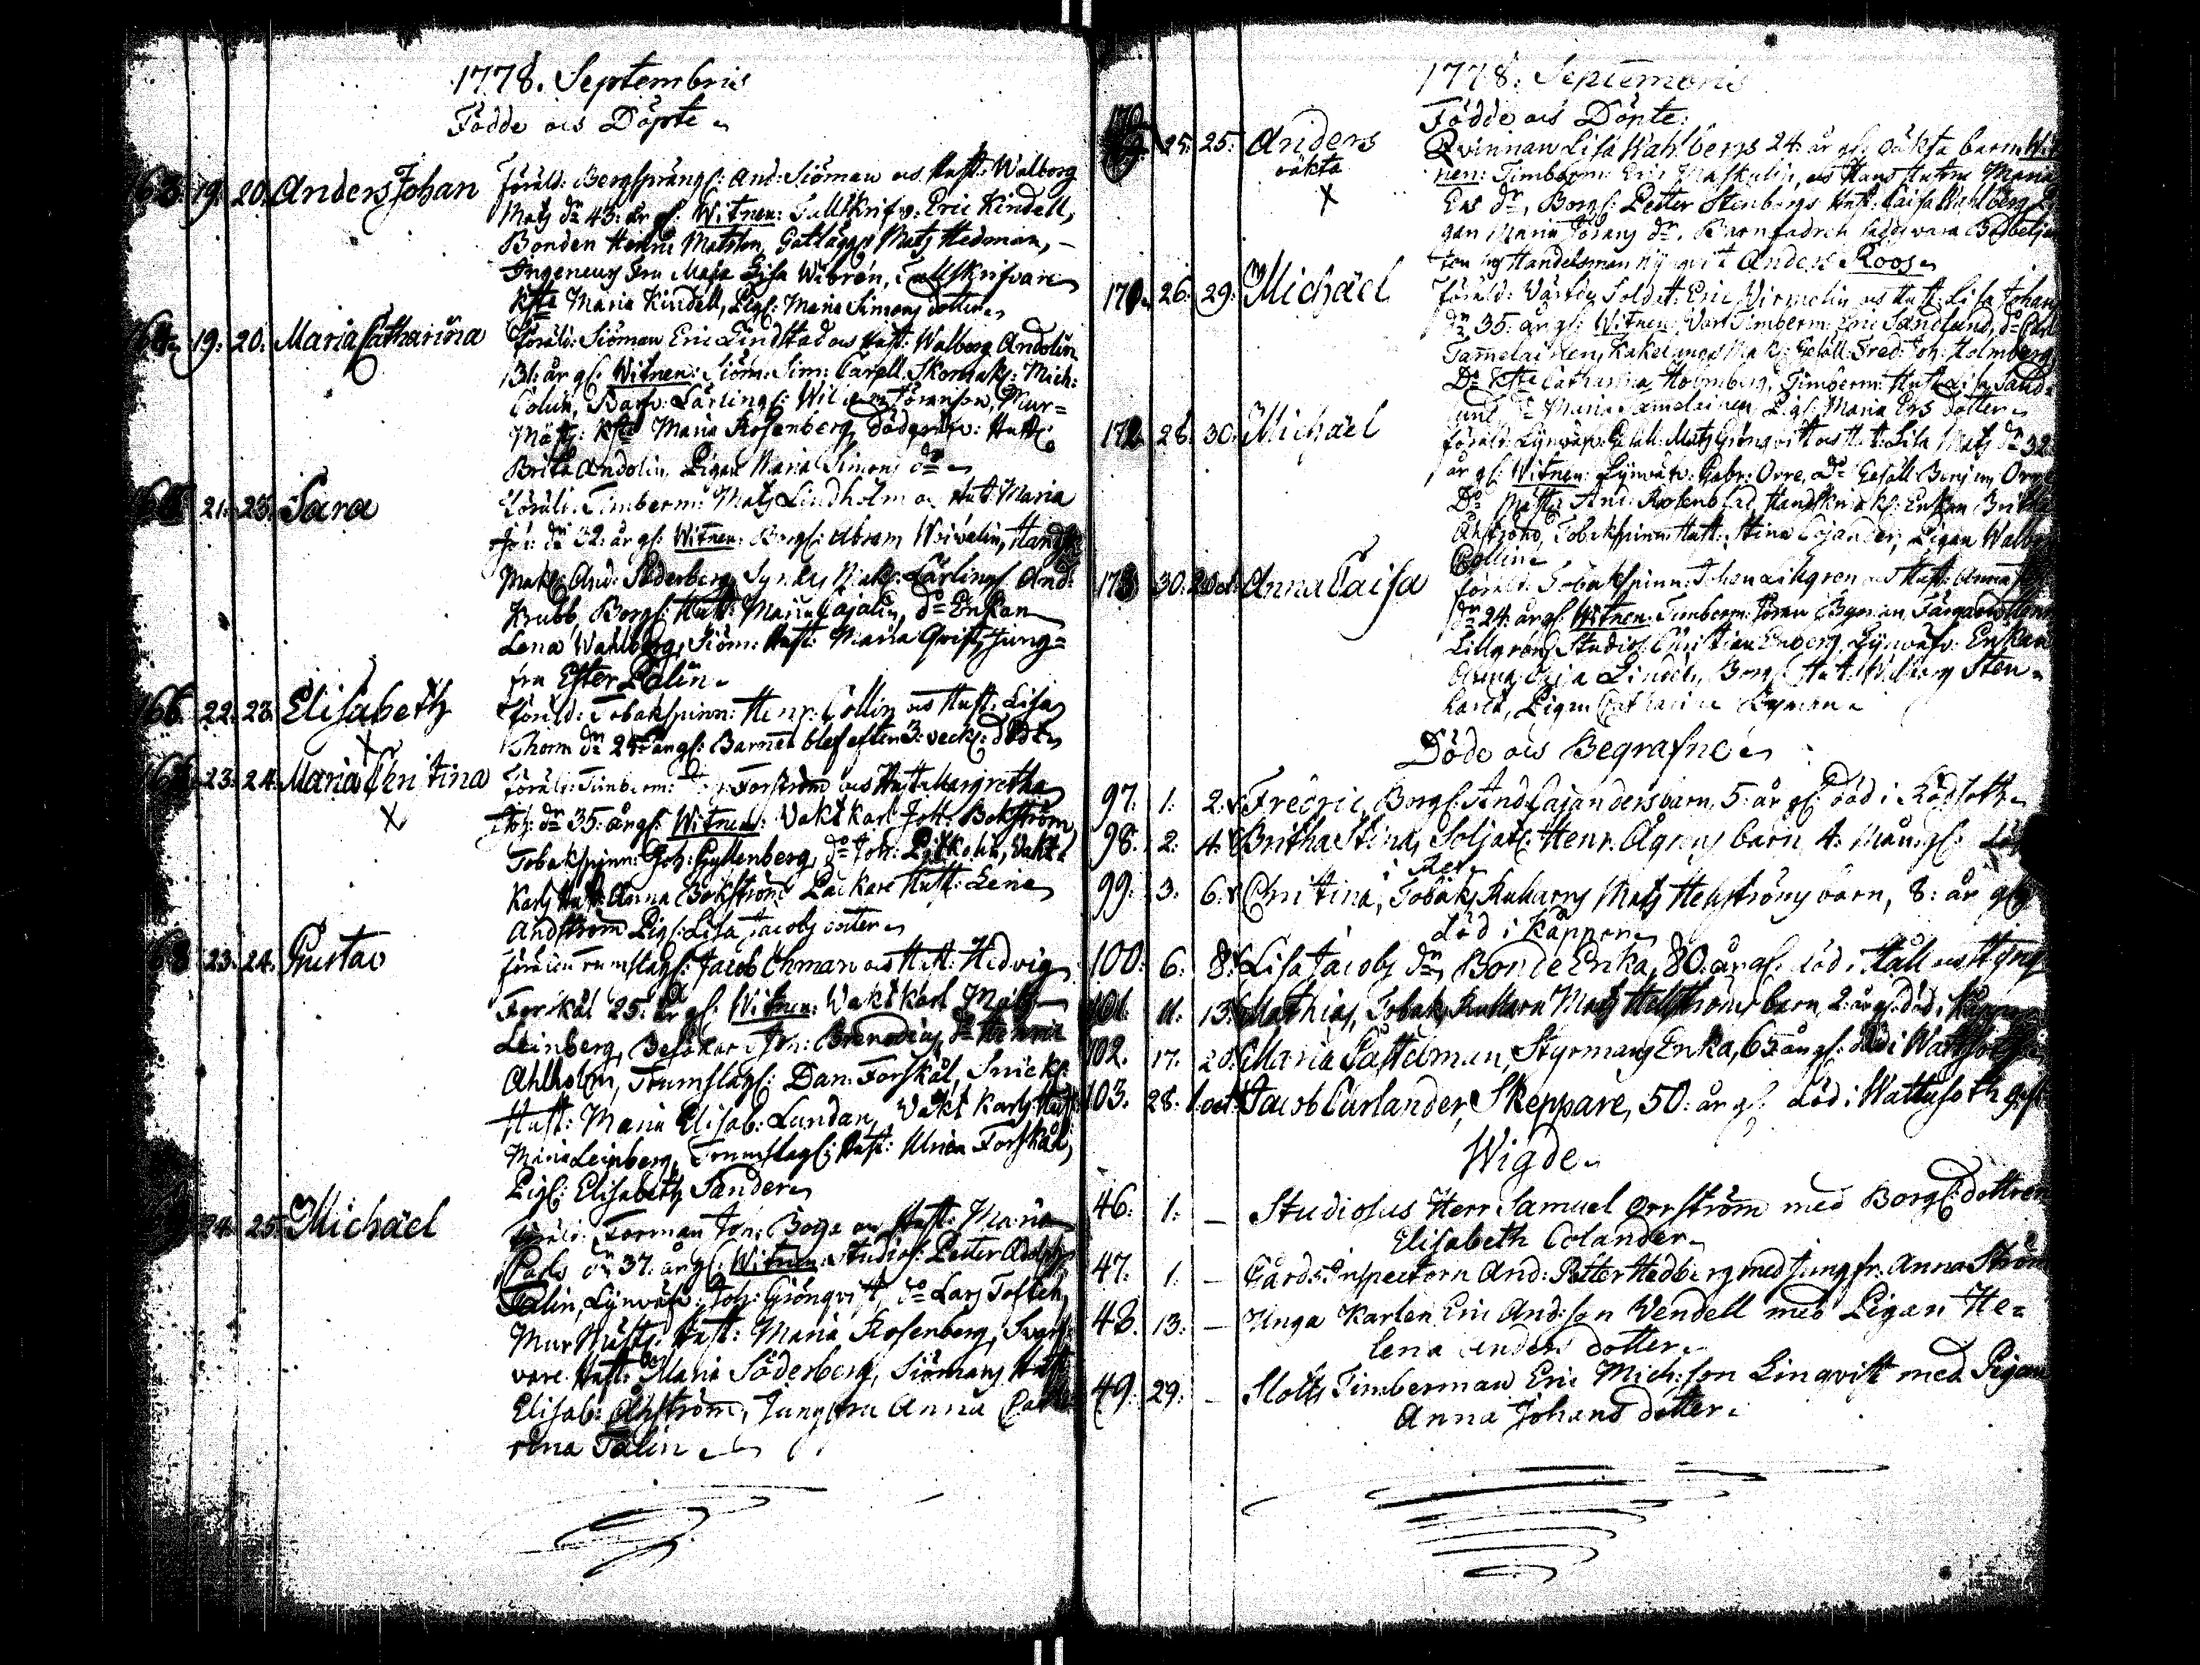 1778. Septembris
Födde och Döpte
163. 19. 20. Anders Johan Föräld: Bergsprängs: And: Siöman och Hust: Walborg
Mats dr 43. år gl: Witnen: Tullskrifv: Eric Kindell,
Bonden Henric Matsson, Gatlägg: Mats Hedman,
Ingeneurs Fru Maja Lisa Wibren, Tullskrifvare
Maria Kindell, Pig: Maria Simons dotter
19. 20. Maria Catharina Föräld: Siöman Eric Lindstad och Hust: Walborg Andolin
31. år gl: Witnen: Siöm: Sim: Carell, Skomak: Mich:
Colin, Lärling: Wilhelm Göranson, Mur=
Mäst: Maria Rosenberg, Hust:
Brita Andolin, Pigan Maria Simons dr
21. 23. Sara Föräld: Timberm: Mats Lindholm och Hust: Maria
dr 32. år gl: Witnen: Borgs: Abram Weivalin, Handsk
Mak: And: Söderberg, Lärling And:
Krubb, Borgs: Hust: Maria Cajalin, do Enkan
Lena Wahlberg, Siöm: Hust: Maria Qvist, Jung=
fru Ester Palin
166. 22. 23. Elisabeth Föräld: Tobakspinn: Henr: Collin och Hust: Lisa
Thom dr 24. år gl: Barnet blef efter 3. veck: död
23. 24. Maria Christina Föräld: Timberm: Forström och Hust: Margretha
Joh: dr 35. år gl: Witnen: Vaktkarl Joh: Bokström,
Tobakspinn: Joh: Gyllenberg, do Joh: Vakt
Karls Hust: Anna Bokström, Packare Hust: Lena
Andström Pig: Lisa Jacobs dotter
23. 24. Gustav Föräld: Trumslag: Jacob Öhman och Hust: Hedvig
Forskål 25. år gl: Witnen: Waktkarl Mats
Leinberg, Besökar Joh: Brenodius, do Henric
Ahlholm, Trumslag: Dan: Forskål, Snick:
Hust: Maria Elisab: Lundan, Wakt Karls Hust:
Maria Leinberg, Trumslag: Hust: Ulrica Forskål,
Pig: Elisabeth Sander
24. 25. Michael Föräld: Forman Joh: Boge och Hust: Maria
Pauls dr 37. år gl: Witnen: Studios: Petter Adolph
Palin, Lijnväfv: Joh: Grönqvist, do Lars Toflen,
Mur Mäst: Hust: Maria Rosenberg, Swarf=
vare Hust: Maria Söderberg, Siömans Hust:
Elisab: Åhström, Jungfru Anna Catha
rina Palin
1778. Septembris
Födde och Döpte.
25. 25. Anders Qvinnan Lisa Wahlbergs 24. år gl: oäkta barn Wit
oäkta nen: Timberm: Eric Maskulin, och Hans Hustru Maria
Ers dr, Borgs: Petter Stenbergs Hust: Caisa Wahlberg, Pi
gan Maria Jörans dr, Barnfadren sades vara
Handelsman Anders Roos
170. 26. 29. Michael Föräld: Soldat: Eric Virmelin och Hust: Lisa Johans
dr 35. år gl: Witnen: Varf Timberm: Eric Sandlund, do
Tamelainen, Kakelugns Mak: Gesäll: Fred: Joh: Holmberg,
Do Catharina Holmberg, Timberm: Hust: Lisa Sand=
lund do Maria Tamelainen, Pig: Maria Ers dotter
172. 28. 30. Michael Föräld: Lijnväfv: Gesäll: Mats Grönqvist och Hust: Lisa Mats dr 32
år gl: Witnen: Lijnväfv: Gabr: Orre, do Gesäll Benjam Orre
Do Mäst: And: Rotenblad, Handskmak: Enkan Britha
Åhström, Tobakspinn: Hust: Stina Cajander, Pigan Walborg
Collin
173. 30. 2 Oct. Anna Caisa Föräld: Tobakspinn: Johan Lihgren och Hust: Anna
dr 24. år gl: Witnen: Timberm: Jöran Bijman,
Lillgren, Studios: Christian Enberg, Lijnväfv: Enkan
Anna Caisa Lindell, Borgs: Hust: Walborg Sten=
hard, Pigan Catharina Bijman
Döde och Begrafne
97. 1. 2. Fredric, Borgs: And: Cajanders barn, 5. år gl: död i Rödsoth
98. 2. 4. Britha Stina, Soldat: Henr: Ågrens barn 4. mån: gl: död
i
99. 3. 6. Christina, Tobaks Rukarns Mats Hellströms barn, 8. år gl:
död i Kåppor
100. 6. 8. Lisa Jacobs dr, Bonde Enka, 80. år gl: död i Håll och Styng
101. 11. 13. Mathias, Tobaks Rukarn Mats Hellströms barn 2. år gl: död i Kåppor
102. 17. 20. Maria Pattelman, Styrmans Enka, 63. år gl: död i Wattusoth
103. 28. 1 oct. Jacob Carlander, Skeppare, 50. år gl: död i Wattusoth
Wigde
46. 1. – Studiosus Herr Samuel Orrström med Borgs: dottren
Elisabeth Colander
47. 1. – Gårds Inspectorn And: Petter Hedberg med Jungfr: Anna Ström
48. 13. – Unga Karlen Eric And:son Wendell med Pigan He=
lena Anders dotter
49. 29. – Slotts Timberman Eric Mich:son Linqvist med Pigan
Anna Johans dotter